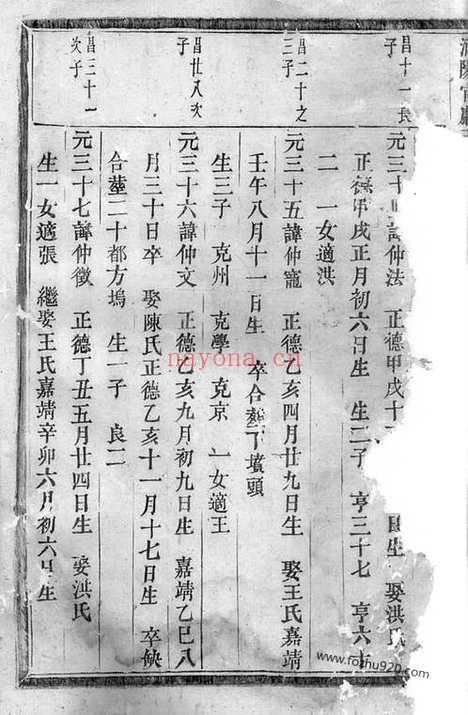 昌十一長
子
元三十 諱仲法 正德甲戌十 日生 娶洪氏
正德甲戌正月初六日生 生二子 亨三十七 亨六十
二 一女適洪
昌二十之
三子
元三十五諱仲寵 正德乙亥四月廿九日生 娶王氏嘉靖
壬午八月十一日生 卒合葬丁墳頭
生三子 克州 克學 克京 一女適王
昌廿八次
子
元三十六諱仲文 正德乙亥九月初九日生 嘉靖乙巳八
月三十日卒 娶陳氏正德乙亥十一月十七日生 卒缺
合葬二十都方塢 生一子 良二
昌三十一
次子
元三十七諱仲徵 正德丁丑五月廿四日生 娶洪氏
生一女適張 繼娶王氏嘉靖辛卯六月初六日生
nayona.cn
www.fozhu920.com